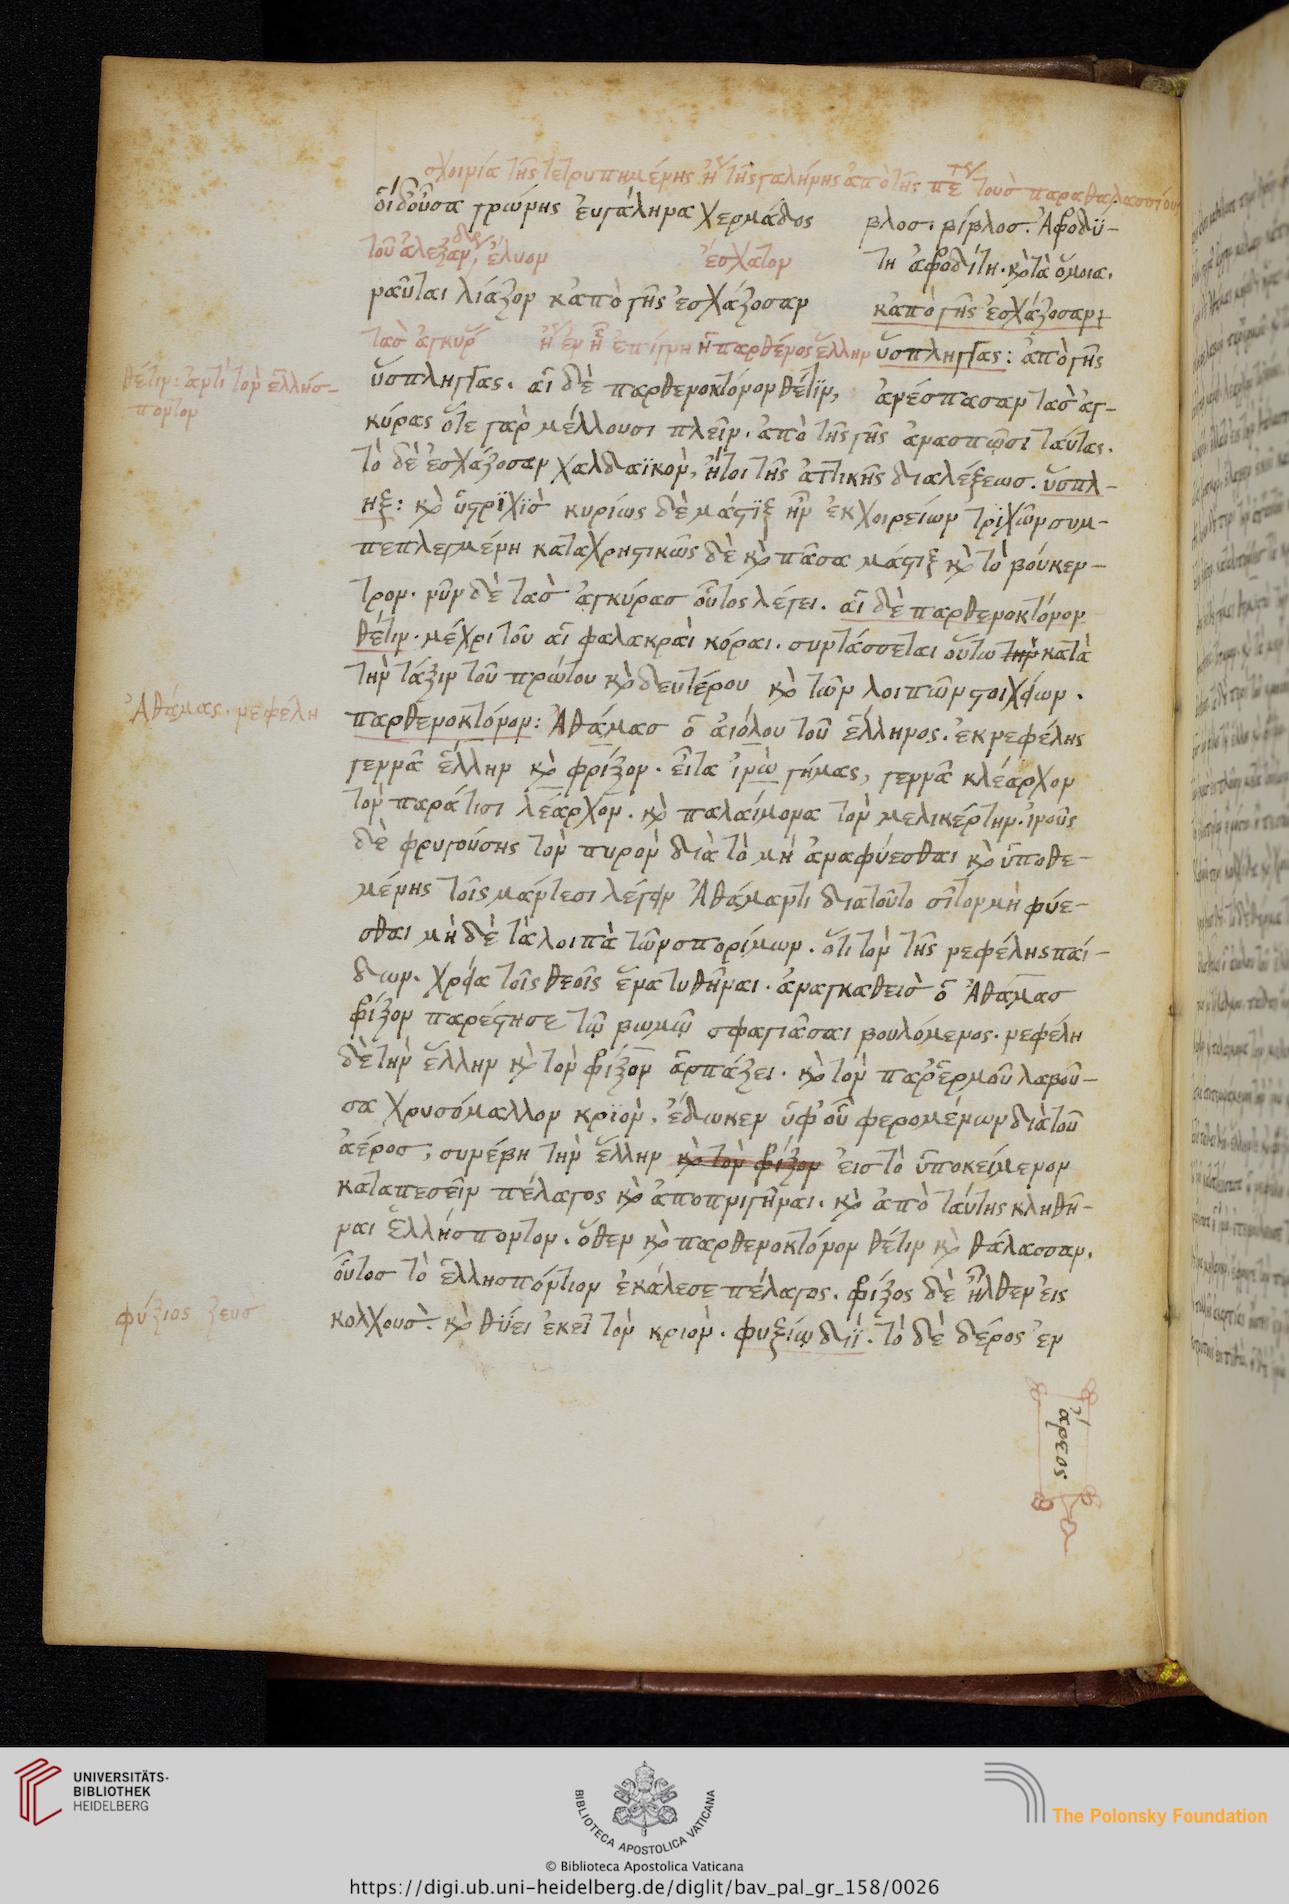 σχοινία τῆς τετρυπημένης ἢ τῆς γαλήνης ἀπὸ τῆς πε τοὺσ παραθαλασσίους
διδοῦσα γρώνης ευγάληνα χερμάδος
τοῦ ἀλεξάν, ἔλυον ἔσχατον
ναῦται λίαζον κἀπὸ γῆς ἐσχάζοσαν
τὰσ ἀγκύρ ἢ ἐν ἧ ἐπνίγη ἡ παρθένος ἕλλην
ὕσπληγγας. αἱ δὲ παρθενοκτόνον θέτϊν,
βλοσ. βίβλοσ. Ἀφροδΰ-
τη ἀφροδίτη. κὶ τὰ ὅμοια.
κἀπὸ γῆς ἐσχάζοσαν
ὕσπληγγας: ἀπὸ γῆς
ἀνέσπασαν τὰσ ἀγ-
θέτιν: ἀντὶ τὸν ἑλλήσ-
ποντον
κύρας ὅτε γὰρ μέλλουσι πλεῖν. ἀπὸ τῆς γῆς ἀνασπῶσι ταύτας.
τὸ δὲ ἐσχάζοσαν χαλδαϊκὸν, ἤτοι τῆς ἀττικῆς διαλέξεωσ. ὕσπλ-
ηξ: κὶ ὑστριχὶσ κυρίως δὲ μάστϊξ ἦν ἐκ χοιρείων τριχῶν συμ-
πεπλεγμένη καταχρηστικῶς δὲ κὶ πᾶσα μάστιξ κὶ τὸ βούκεν-
τρον. νῦν δὲ τὰσ ἀγκύρασ οὗτος λέγει. αἱ δὲ παρθενοκτόνον
θέτιν. μέχρι τοῦ αἱ φαλακραὶ κόραι. συντάσσεται οὕτω τὴν κατὰ
τὴν τάξιν τοῦ πρώτου κὶ δευτέρου κὶ τῶν λοιπῶν στοιχείων.
Ἀθάμας. νεφέλη
παρθενοκτόνον: Ἀθάμασ ὁ ἀιόλου τοῦ ἕλληνος. ἐκ νεφέλης
γεννᾶ ἕλλην κὶ φρίξον. εἶτα ἰνὼ γήμας, γεννᾶ κλέαρχον
τὸν παρά τισι λέαρχον. κὶ παλαίμονα τὸν μελικέρτην. ἰνοῦς
δὲ φρυγούσης τὸν πυρὸν διὰ τὸ μὴ ἀναφύεσθαι κὶ ὑποθε-
μένης τοῖς μάντεσι λέγειν Ἀθάμαντι διατοῦτο σῖτον μὴ φύε-
σθαι μὴ δὲ τὰ λοιπὰ τῶν σπορίμων. ὅτι τὸν τῆς νεφέλης παί-
δων. χρεία τοῖς θεοῖς ἕνα τυθῆναι. ἀναγκαθεὶσ ὁ Ἀθάμασ
φρίξον παρέστησε τῷ βωμῷ σφαγιᾶσαι βουλόμενος. νεφέλη
δὲ τὴν ἕλλην κὶ τὸν φρίξον ἁρπάζει. κὶ τὸν παρ' ἑρμοῦ λαβοῦ-
σα χρυσόμαλλον κρϊὸν, ἔδωκεν ὑφ' οὗ φερομένων διὰ τοῦ
ἀέροσ, συνέβη τὴν ἕλλην κὶ τὸν φρίξον εισ τὸ ὑποκείμενον
καταπεσεῖν πέλαγος κὶ ἀποπνιγῆναι. κὶ ἀπὸ ταύτης κληθῆ-
ναι ἑλλήσποντον. ὅθεν κὶ παρθενοκτόνον θέτιν κὶ θάλασσαν,
οὗτοσ τὸ ἑλλησπόντιον ἐκάλεσε πέλαγος. φρίξος δὲ ἦλθεν εἰς
φύξιος ζεὺσ
κολχουσ. κὶ θύει ἐκεῖ τὸν κριὸν. φυξίῳ διΐ. τὸ δὲ δέρος ἐν
ἄρεος
UNIVERSITÄTS-
BIBLIOTHEK
HEIDELBERG
BIBLIOTECA APOSTOLICA VATICANA
The Polonsky Foundation
© Biblioteca Apostolica Vaticana
https://digi.ub.uni-heidelberg.de/diglit/bav_pal_gr_158/0026